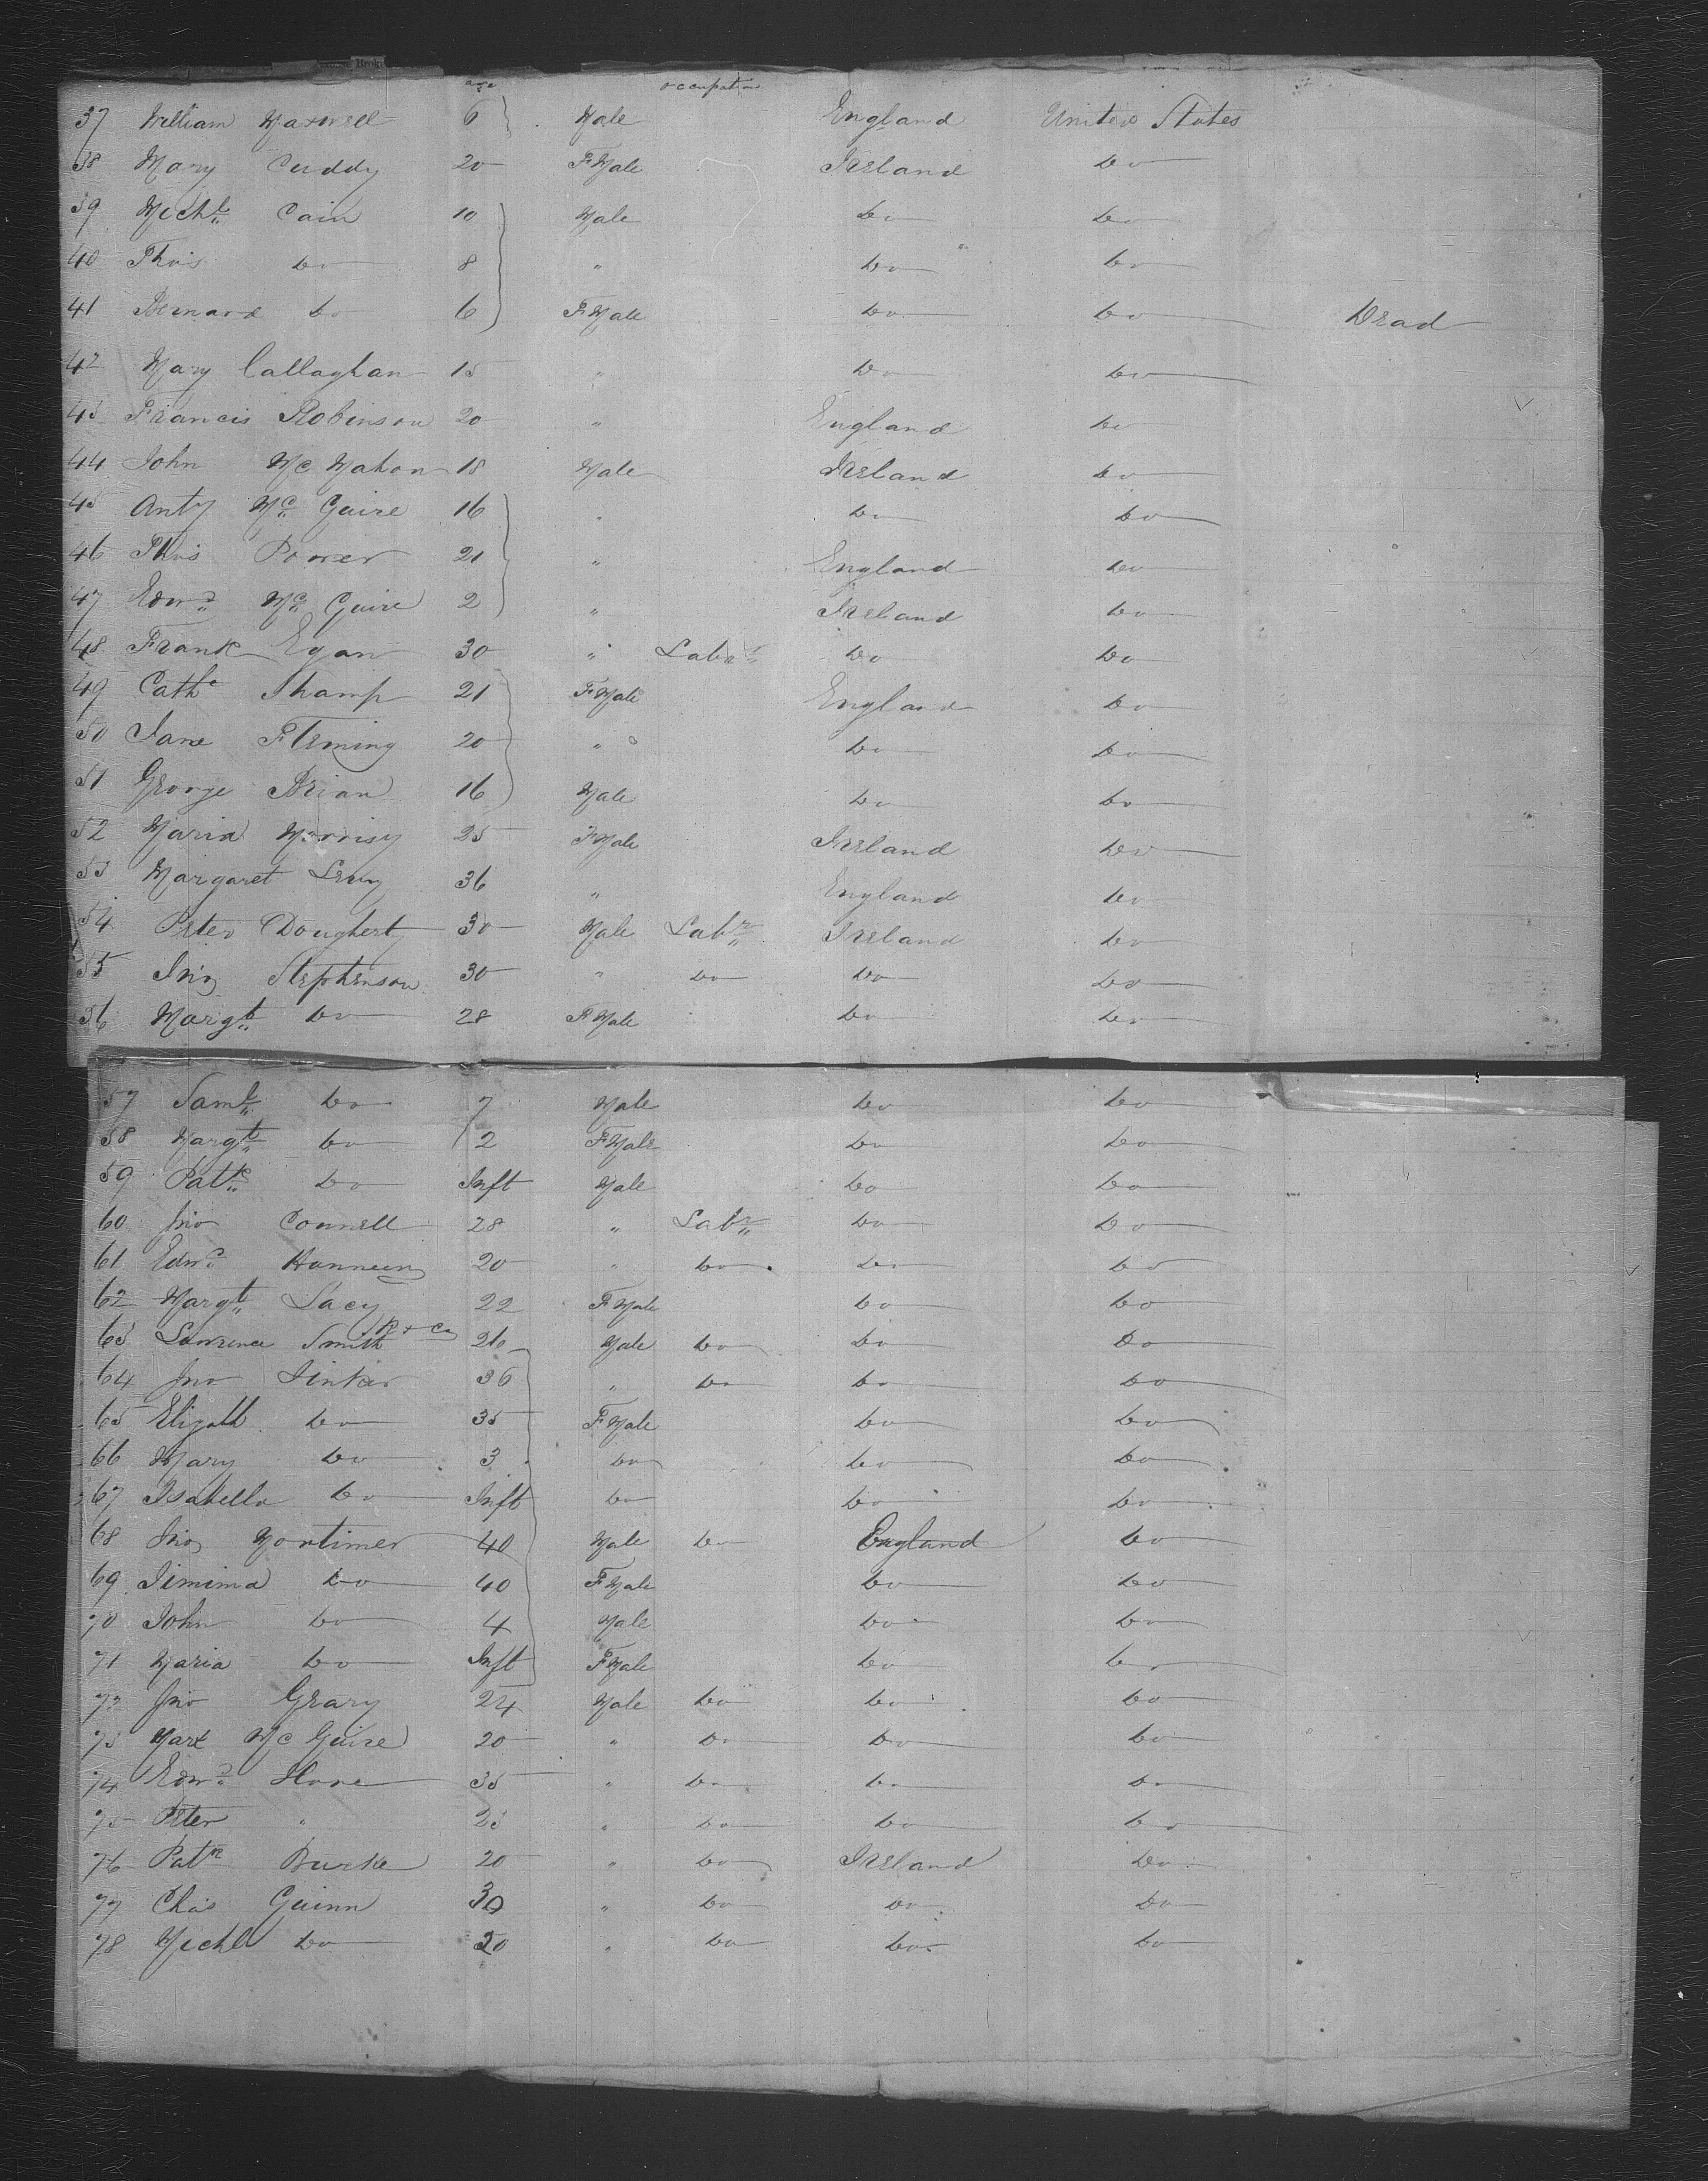 age occupation
37 William Maxwell 6 Male England United States
38 Mary Cuddy 20 FMale Ireland Do
39 Michl Cain 10 Male Do Do
40 Thos Do 8 " Do Do
41 Bernard Do 6 FMale Do Do Dead
42 Mary Callaghan 15 " Do Do
43 Francis Robinson 20 " England Do
44 John McMahon 18 Male Ireland Do
45 Anty McGuire 16 " Do Do
46 Thos Power 21 " England Do
47 Edwd McGuire 2 " Ireland Do
48 Frank Egan 30 " Labr Do Do
49 Cathe Shamp 21 FMale England Do
50 Jane Fleming 20 " Do Do
51 George Brian 16 Male Do Do
52 Maria Morrisy 25 FMale Ireland Do
53 Margaret 36 " England Do
54 Peter Dougherty 30 Male Labr Ireland Do
55 Jno Stephenson 30 " Do Do Do
56 Margt Do 28 FMale Do Do
57 Saml Do 7 Male Do Do
58 Margt Do 2 FMale Do Do
59 Patk Do Inft Male Do Do
60 Jno Connell 28 " Labr Do Do
61 Edwd Hanneen 20 " Do Do Do
62 Margt Lacy 22 FMale Do Do
63 Lawrence Smith 26 Male Do Do Do
64 Jno Tinker 36 " Do Do Do
65 Elizath Do 35 FMale Do Do
66 Mary Do 3 Do Do Do
67 Isabella Do Inft Do Do Do
68 Jno Mortimer 40 Male Do England Do
69 Jemima Do 40 FMale Do Do
70 John Do 4 Male Do Do
71 Maria Do Inft FMale Do Do
72 Jno Geary 24 Male Do Do Do
73 Mark McGuire 20 " Do Do Do
74 Edwd Hore 35 " Do Do Do
75 Peter " 23 " Do Do Do
76 Patk Burke 20 " Do Ireland Do
77 Chas Guinn 30 " Do Do Do
78 Michl Do 20 " Do Do Do